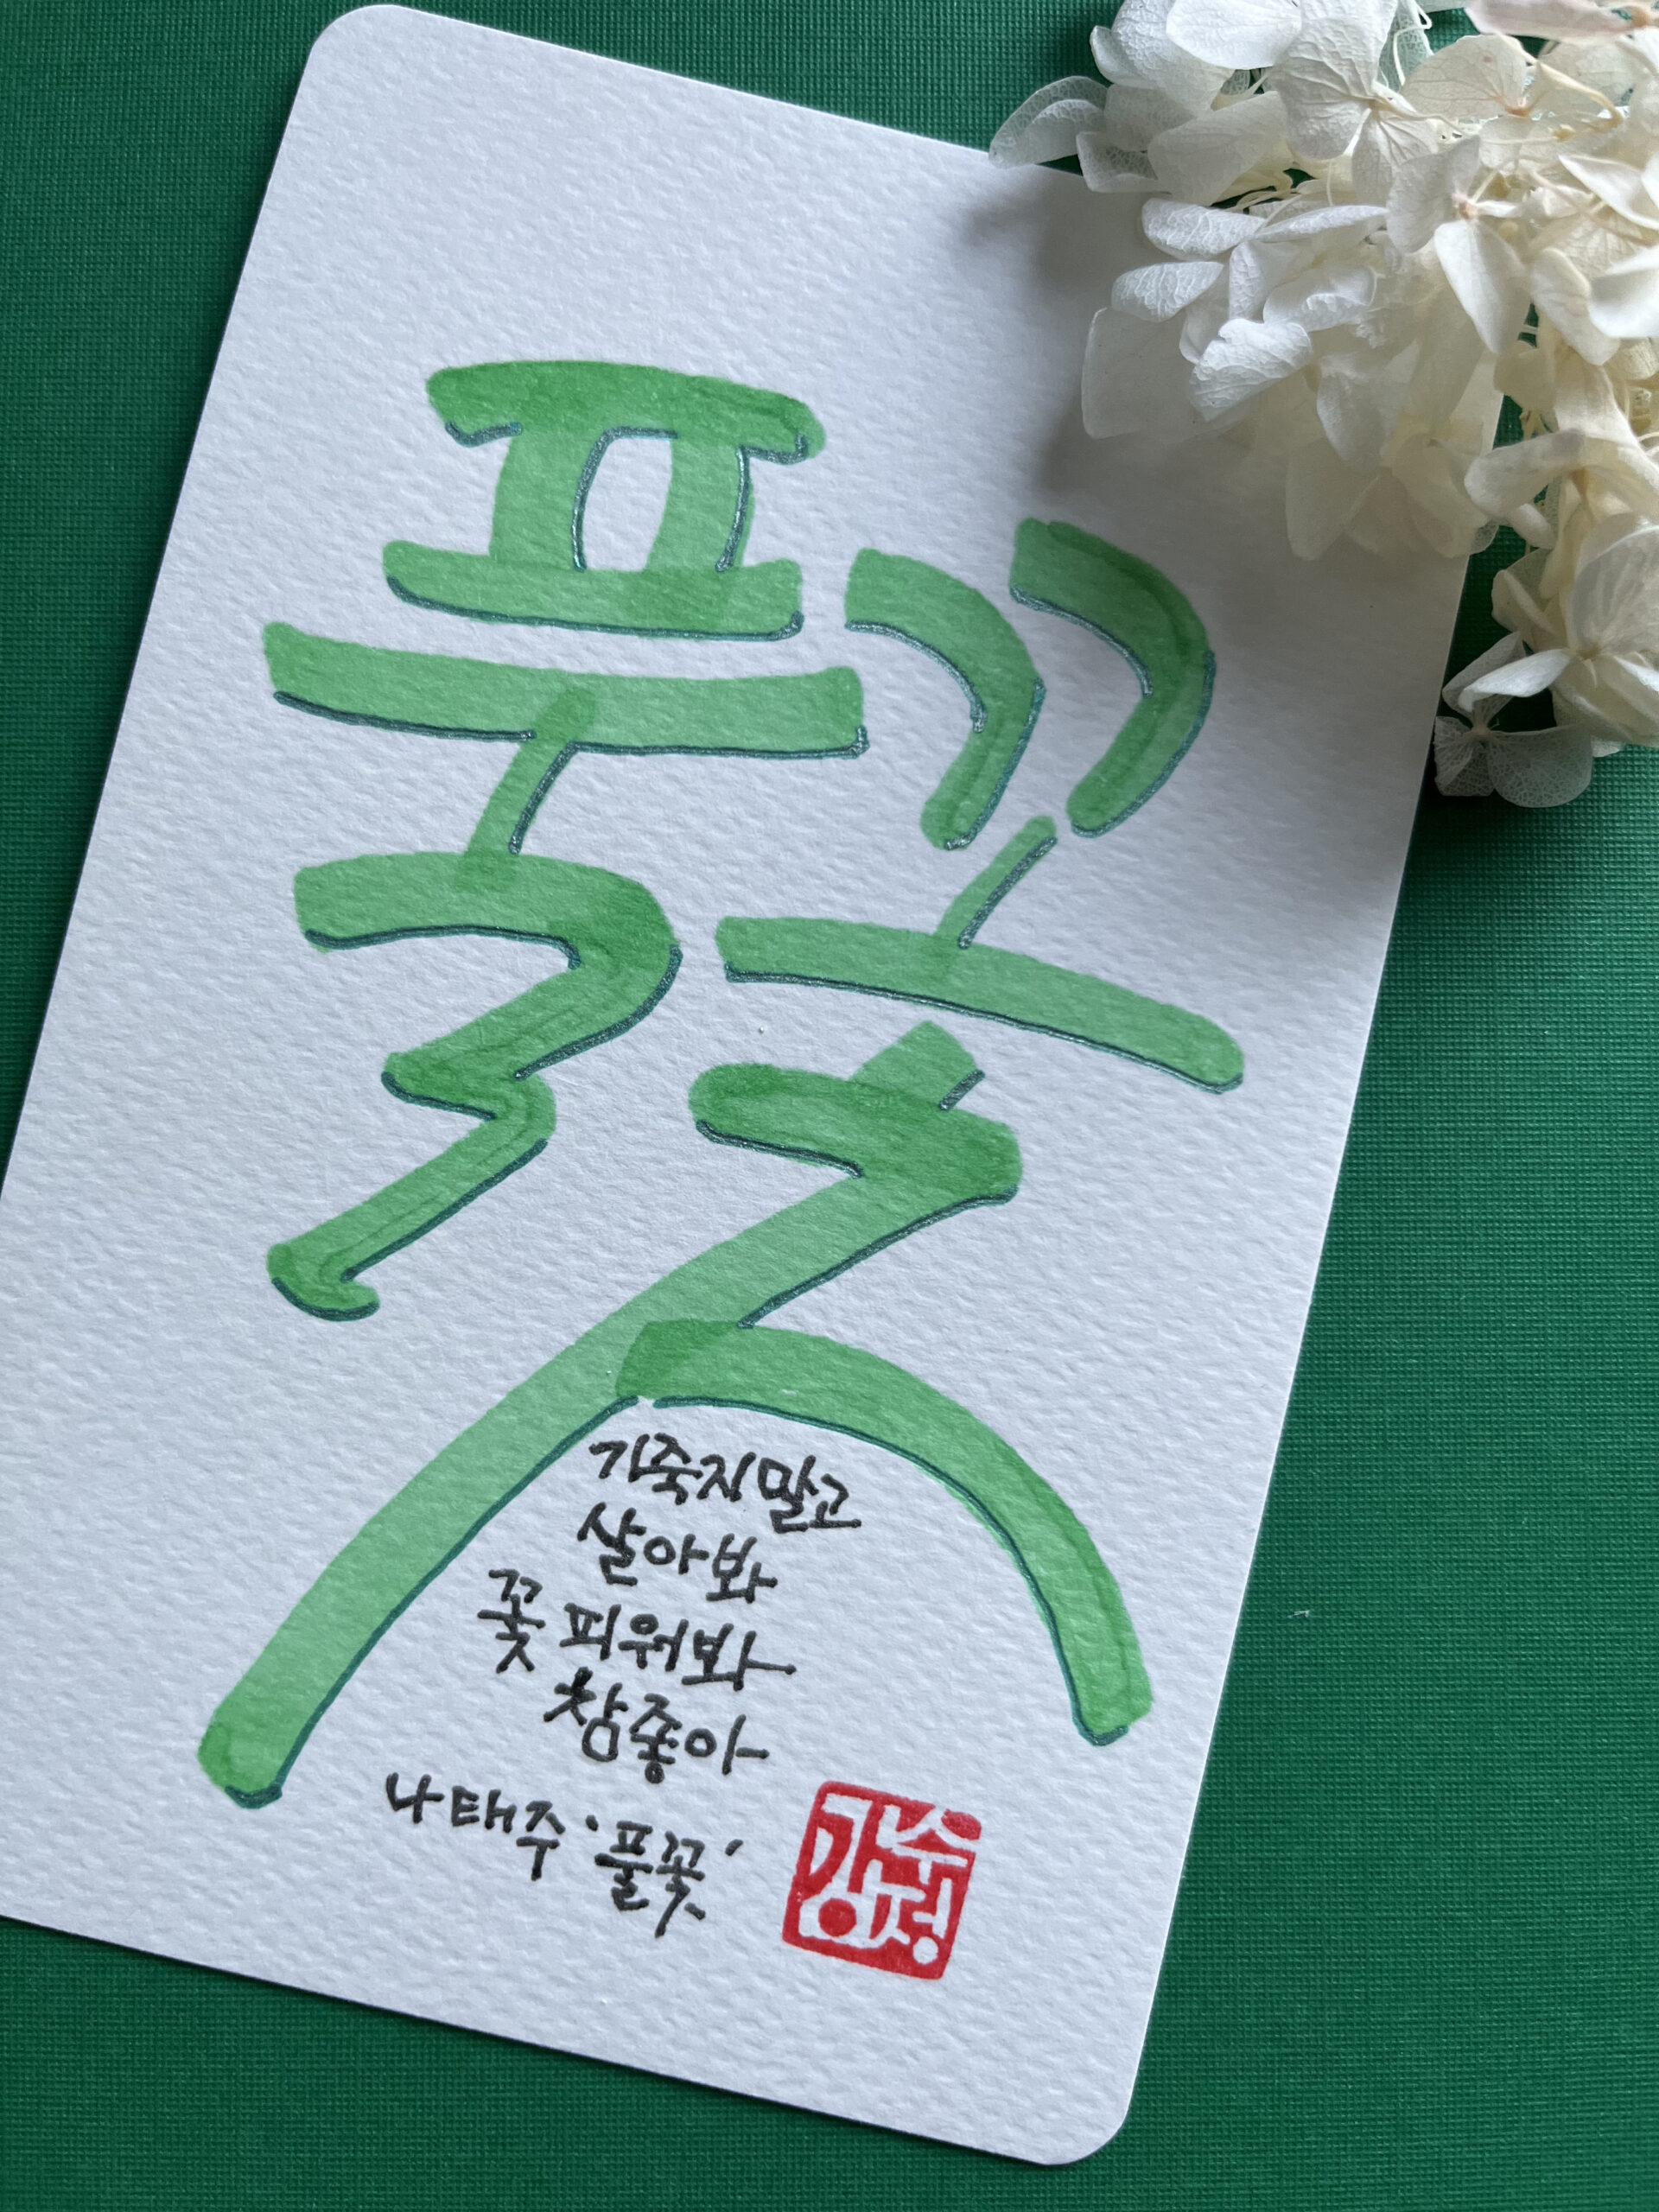 풀꽃
기죽지 말고
살아봐
꽃 피워봐
참 좋아
나태주 '풀꽃'
강수정